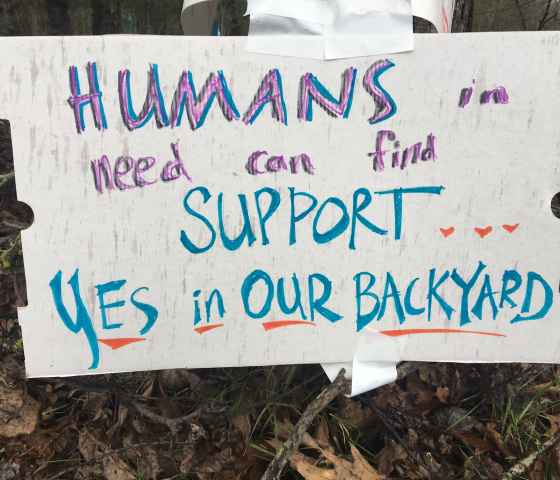 HUMANS in
need can find
SUPPORT ...
YES in OUR BACKYARD